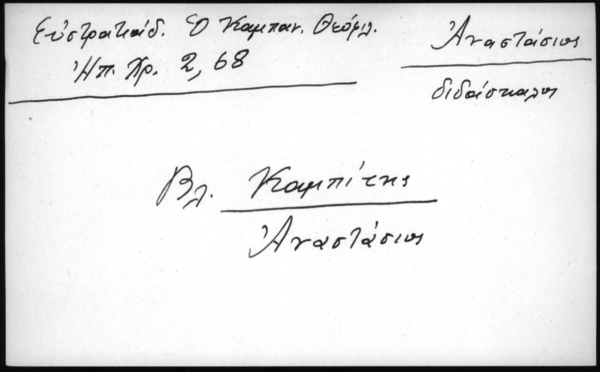 Εὐστρατιάδ. Ὁ Καμπαν. Θεόφιλ.
Ἠπ. Χρ. 2, 68
Ἀναστάσιος
διδάσκαλος
Βλ. Καμπίτης
Ἀναστάσιος